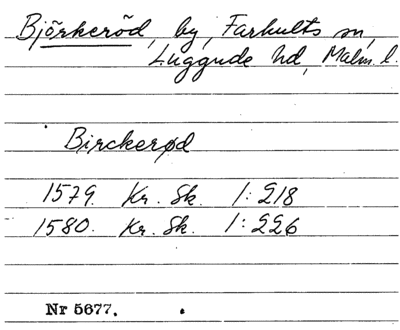 Björkeröd, by, Farhults sn,
Luggude hd, Malm. l.
Birckerød
1579. Kr. Sk. 1:218
1580. Kr. Sk. 1:226
Nr 5677.